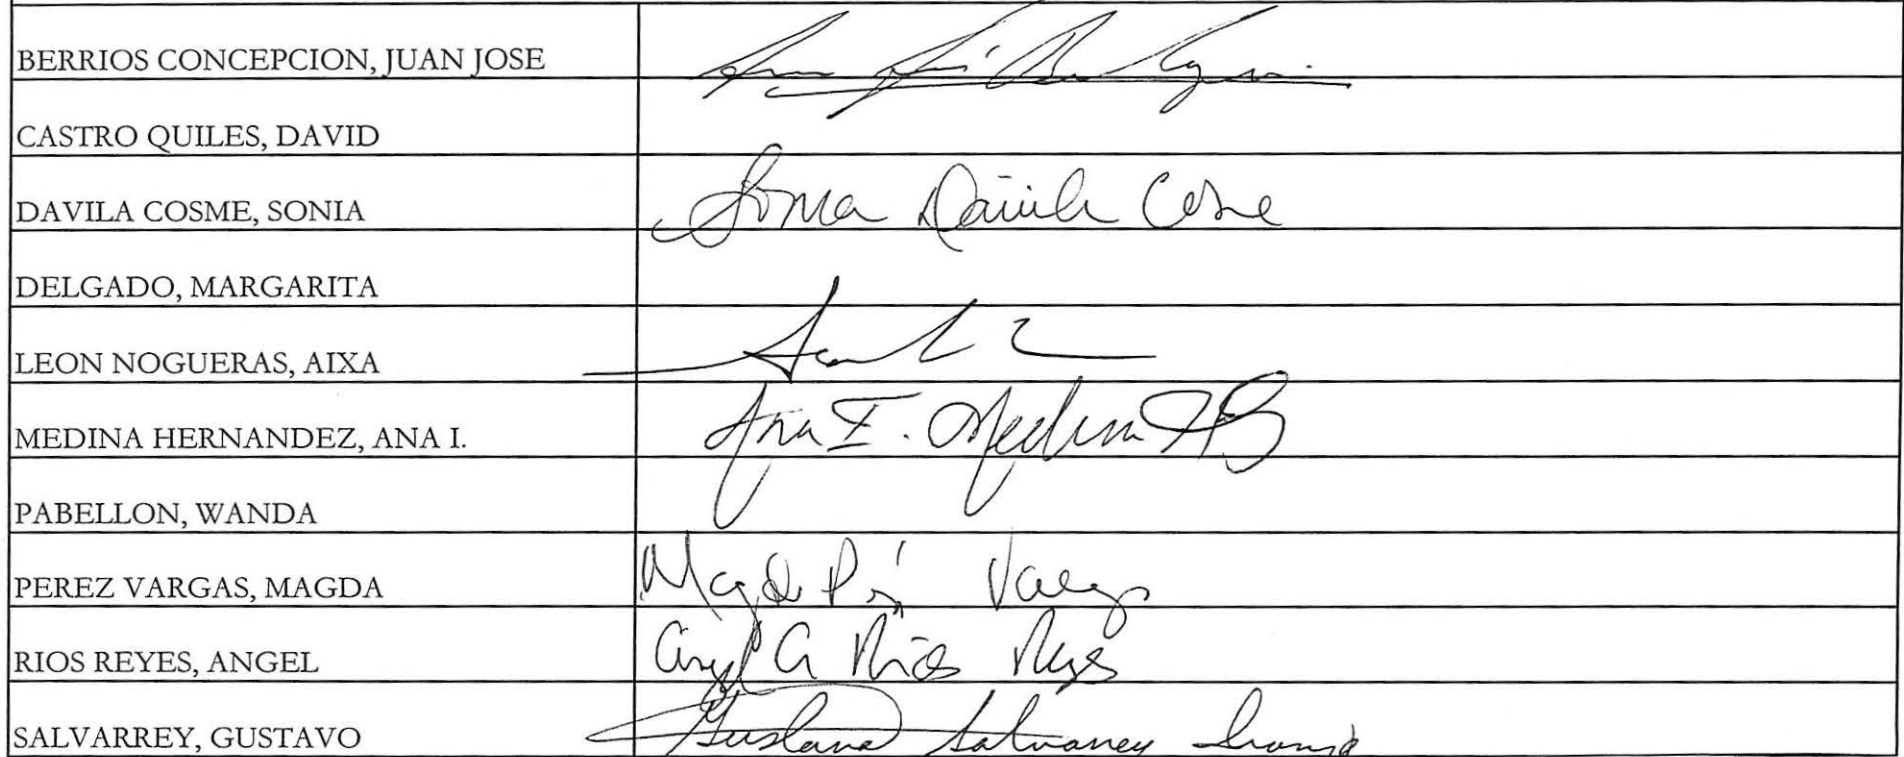 BERRIOS CONCEPCION, JUAN JOSE
CASTRO QUILES, DAVID
DAVILA COSME, SONIA Sonia Dávila Cosme
DELGADO, MARGARITA
LEON NOGUERAS, AIXA
MEDINA HERNANDEZ, ANA I. Ana I. Medina
PABELLON, WANDA
PEREZ VARGAS, MAGDA Magda Vargas
RIOS REYES, ANGEL Angel A Rios Reyes
SALVARREY, GUSTAVO Gustavo Salvarrey